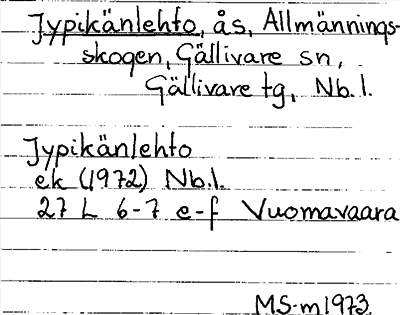 Jypikänlehto, ås, Allmännings-
skogen, Gällivare sn,
Gällivare tg, Nb.l.
Jypikänlehto
ek (1972) Nb.l.
27 L 6-7 e-f Vuomavaara
MS-m1973